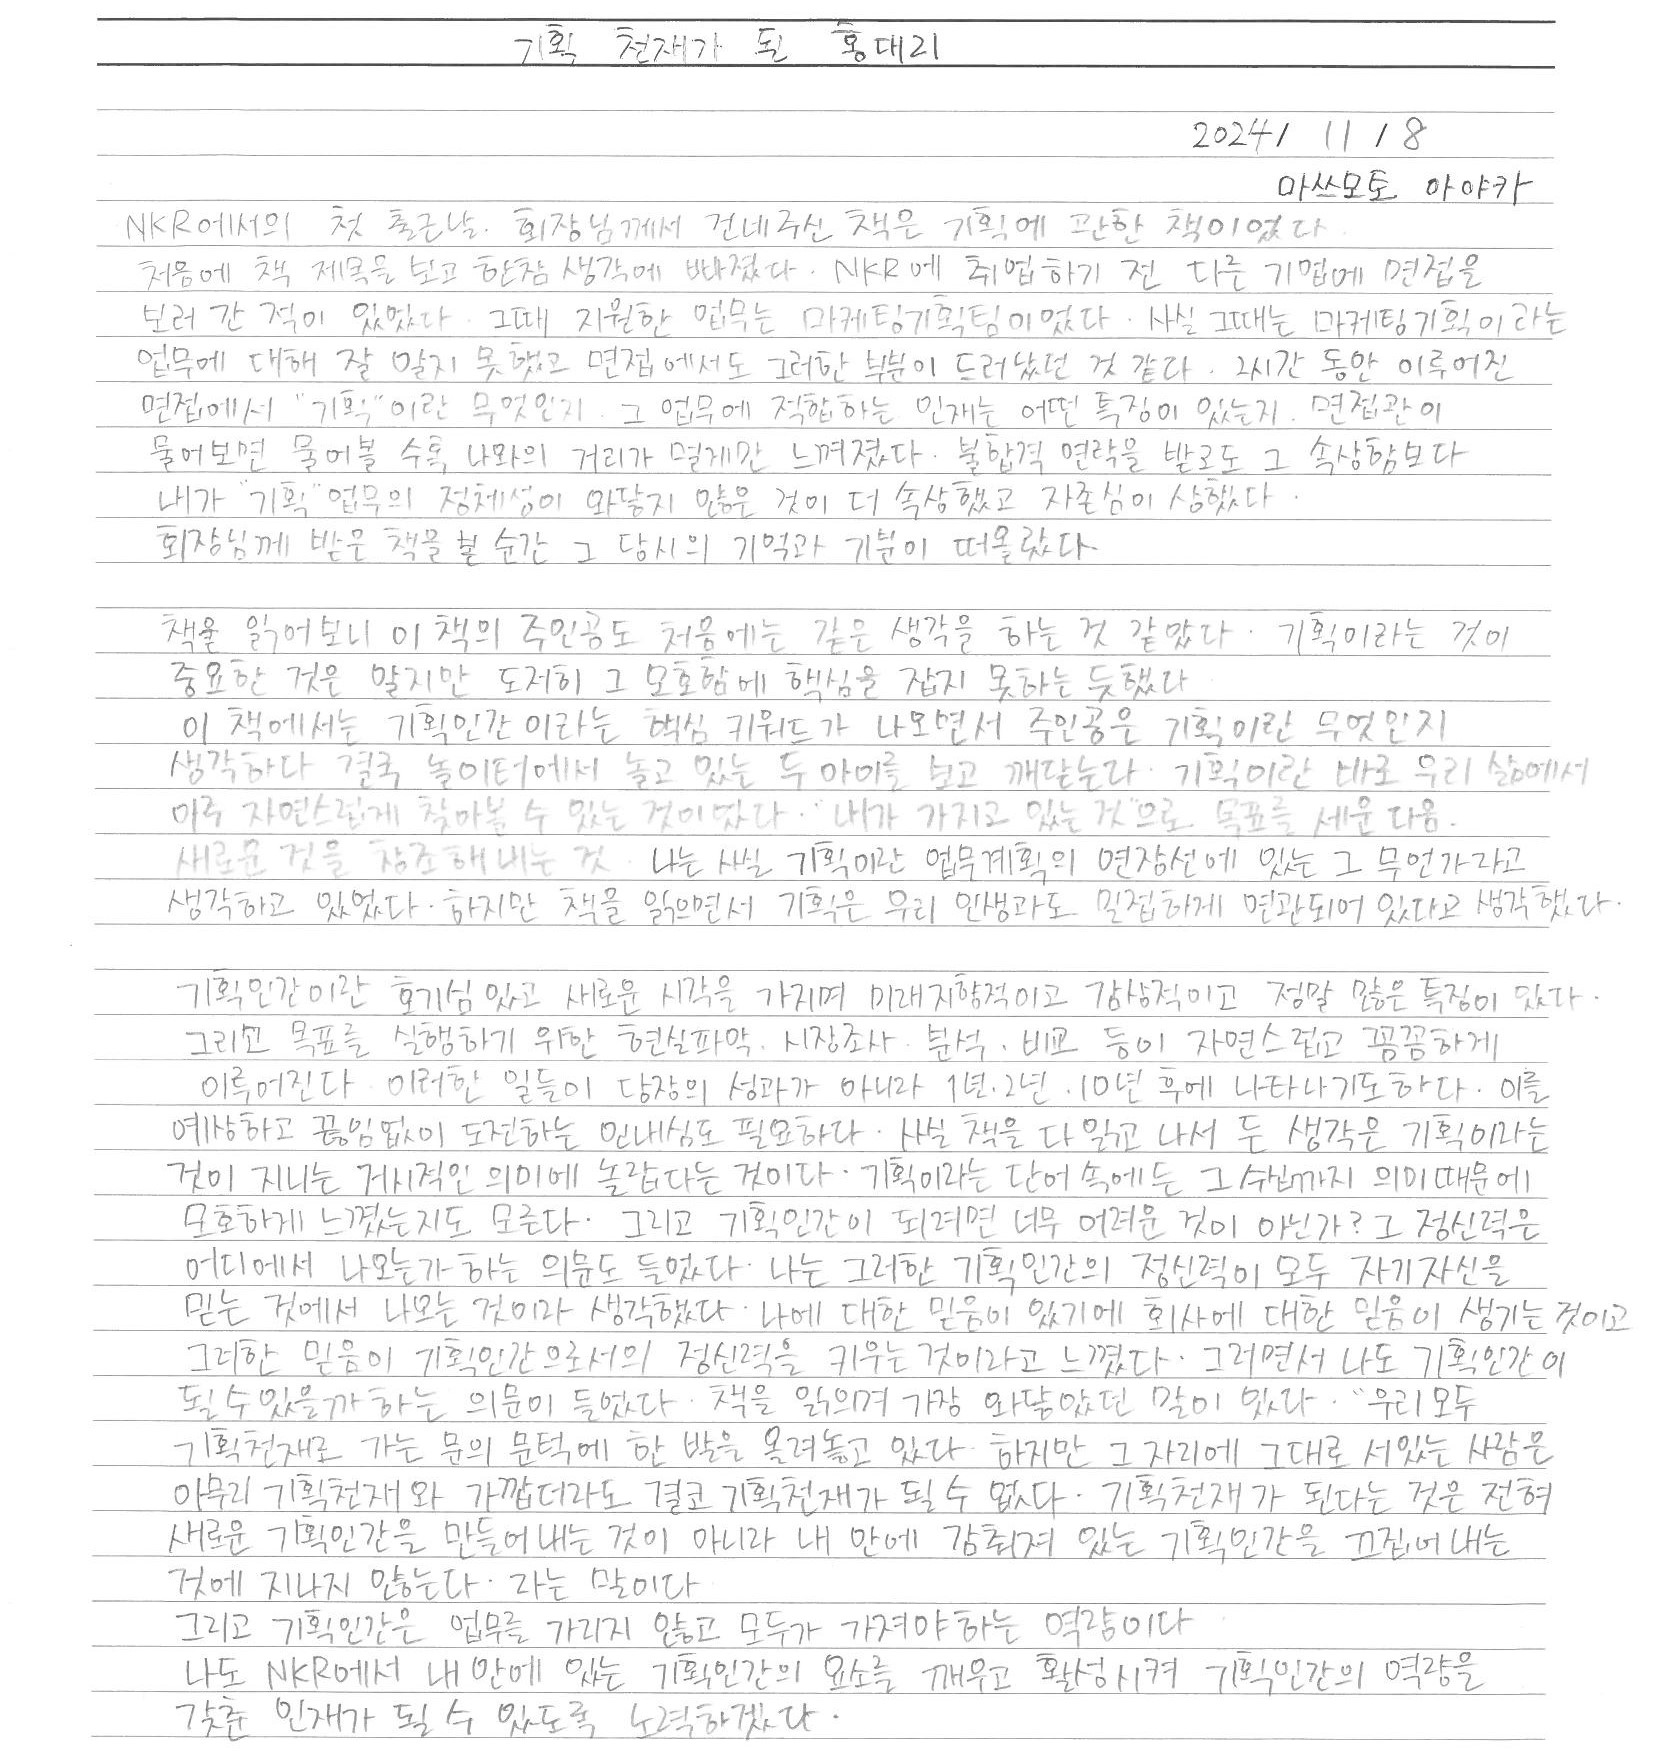 기획 천재가 된 홍대리
2024/ 11 / 8
마쓰모토 아야카
NKR에서의 첫 출근날. 회장님께서 건네주신 책은 기획에 관한 책이었다.
처음에 책 제목을 보고 한참 생각에 빠졌다. NKR에 취업하기 전 다른 기업에 면접을
보러 간 적이 있었다. 그때 지원한 업무는 마케팅기획팀이었다. 사실 그때는 마케팅기획이라는
업무에 대해 잘 알지 못했고 면접에서도 그러한 부분이 드러났던 것 같다. 2시간 동안 이루어진
면접에서 "기획"이란 무엇인지. 그 업무에 적합하는 인재는 어떤 특징이 있는지. 면접관이
물어보면 물어볼 수록 나와의 거리가 멀게만 느껴졌다. 불합격 연락을 받고도 그 속상함보다
내가 "기획"업무의 정체성이 와닿지 않은 것이 더 속상했고 자존심이 상했다.
회장님께 받은 책을 볼 순간 그 당시의 기억과 기분이 떠올랐다.
책을 읽어보니 이 책의 주인공도 처음에는 같은 생각을 하는 것 같았다. 기획이라는 것이
중요한 것은 알지만 도저히 그 모호함에 핵심을 잡지 못하는 듯했다
이 책에서는 기획인간이라는 핵심 키워드가 나오면서 주인공은 기획이란 무엇인지
생각하다 결국 놀이터에서 놀고 있는 두 아이를 보고 깨닫는다. 기획이란 바로 우리 삶에서
아주 자연스럽게 찾아볼 수 있는 것이었다. "내가 가지고 있는 것"으로 목표를 세운 다음.
새로운 것을 창조해 내는 것. 나는 사실 기획이란 업무계획의 연장선에 있는 그 무언가라고
생각하고 있었다. 하지만 책을 읽으면서 기획은 우리 인생과도 밀접하게 연관되어 있다고 생각했다.
기획인간이란 호기심 있고 새로운 시각을 가지며 미래지향적이고 감상적이고 정말 많은 특징이 있다.
그리고 목표를 실행하기 위한 현실파악. 시장조사. 분석. 비교 등이 자연스럽고 꼼꼼하게
이루어진다. 이러한 일들이 당장의 성과가 아니라 1년. 2년. 10년 후에 나타나기도하다. 이를
예상하고 끊임없이 도전하는 인내심도 필요하다. 사실 책을 다 읽고 나서 든 생각은 기획이라는
것이 지니는 거시적인 의미에 놀랍다는 것이다. 기획이라는 단어 속에 든 그 수십까지 의미 때문에
모호하게 느꼈는지도 모른다. 그리고 기획인간이 되려면 너무 어려운 것이 아닌가? 그 정신력은
어디에서 나오는가 하는 의문도 들었다. 나는 그러한 기획인간의 정신력이 모두 자기자신을
믿는 것에서 나오는 것이라 생각했다. 나에 대한 믿음이 있기에 회사에 대한 믿음이 생기는 것이고
그러한 믿음이 기획인간으로서의 정신력을 키우는 것이라고 느꼈다. 그러면서 나도 기획인간이
될 수 있을까 하는 의문이 들었다. 책을 읽으며 가장 와닿았던 말이 있다. "우리 모두
기획천재로 가는 문의 문턱에 한 발을 올려놓고 있다. 하지만 그 자리에 그대로 서있는 사람은
아무리 기획천재와 가깝더라도 결코 기획천재가 될 수 없다. 기획천재가 된다는 것은 전혀
새로운 기획인간을 만들어 내는 것이 아니라 내 안에 감춰져 있는 기획인간을 끄집어 내는
것에 지나지 않는다. 라는 말이다
그리고 기획인간은 업무를 가리지 않고 모두가 가져야 하는 역량이다
나도 NKR에서 내 안에 있는 기획인간의 요소를 깨우고 활성시켜 기획인간의 역량을
갖춘 인재가 될 수 있도록 노력하겠다.